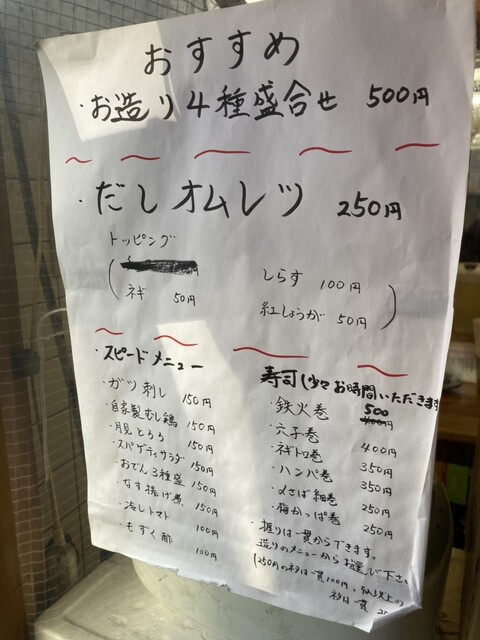 おすすめ
・お造り4種盛合せ 500円
・だしオムレツ 250円
トッピング
ネギ 50円
しらす 100円
紅しょうが 50円
・スピードメニュー
・ガツ刺し 150円
・自家製むし鶏 150円
・月見とろろ 150円
・スパゲティサラダ 150円
・おでん3種盛 150円
・なす揚げ煮 150円
・冷しトマト 100円
・もずく酢 100円
寿司(少々お時間いただきます
・鉄火巻 500
・穴子巻 400円
・ネギトロ巻 350円
・ハンパ巻 350円
・よさば細巻 250円
・梅かっぱ巻 250円
・握りは一貫からできます。
造りのメニューからお選び下さい。
(250円のネタは一貫100円・以上の
ネタは一貫